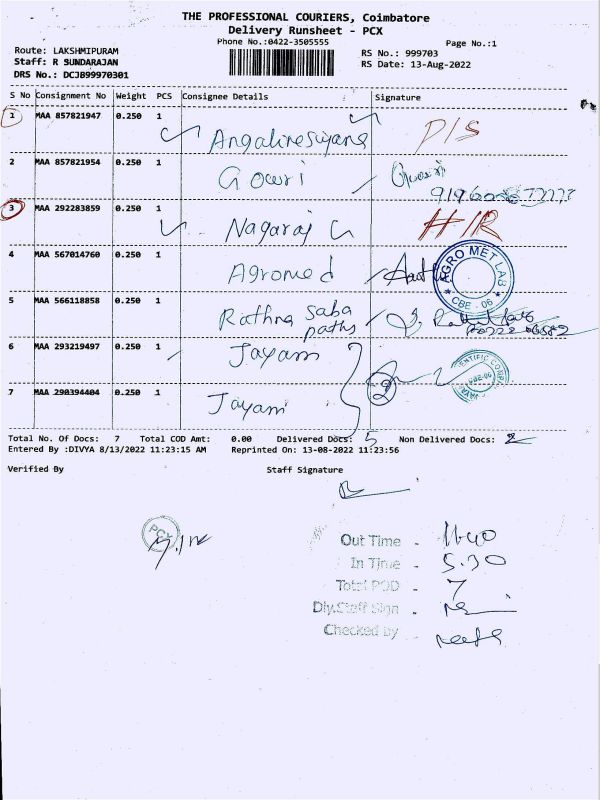 THE PROFESSIONAL COURIERS, Coimbatore
Delivery Runsheet - PCX
Phone No.:0422-3505555
Page No.:1
Route: LAKSHMIPURAM
RS No.: 999703
Staff: R SUNDARAJAN
RS Date: 13-Aug-2022
DRS No.: DCJB99970301
S No Consignment No Weight PCS Consignee Details Signature
1 MAA 857821947 0.250 1 P/S
2 MAA 857821954 0.250 1 Gowri
3 MAA 292283859 0.250 1 Nagaraj
4 MAA 567014760 0.250 1 Agromed AGRO MET LAB CBE - 06
5 MAA 566118858 0.250 1 Rathna Saba
pathy
6 MAA 293219497 0.250 1 Jayam
7 MAA 290394404 0.250 1 Jayam 2
Total No. Of Docs: 7 Total COD Amt: 0.00 Delivered Docs: 5 Non Delivered Docs: 2
Entered By :DIVYA 8/13/2022 11:23:15 AM Reprinted On: 13-08-2022 11:23:56
Verified By Staff Signature
PCX
Out Time - 11.40
In Time - 5.30
Total POD - 7
Dly.Staff Sign -
Checked by -